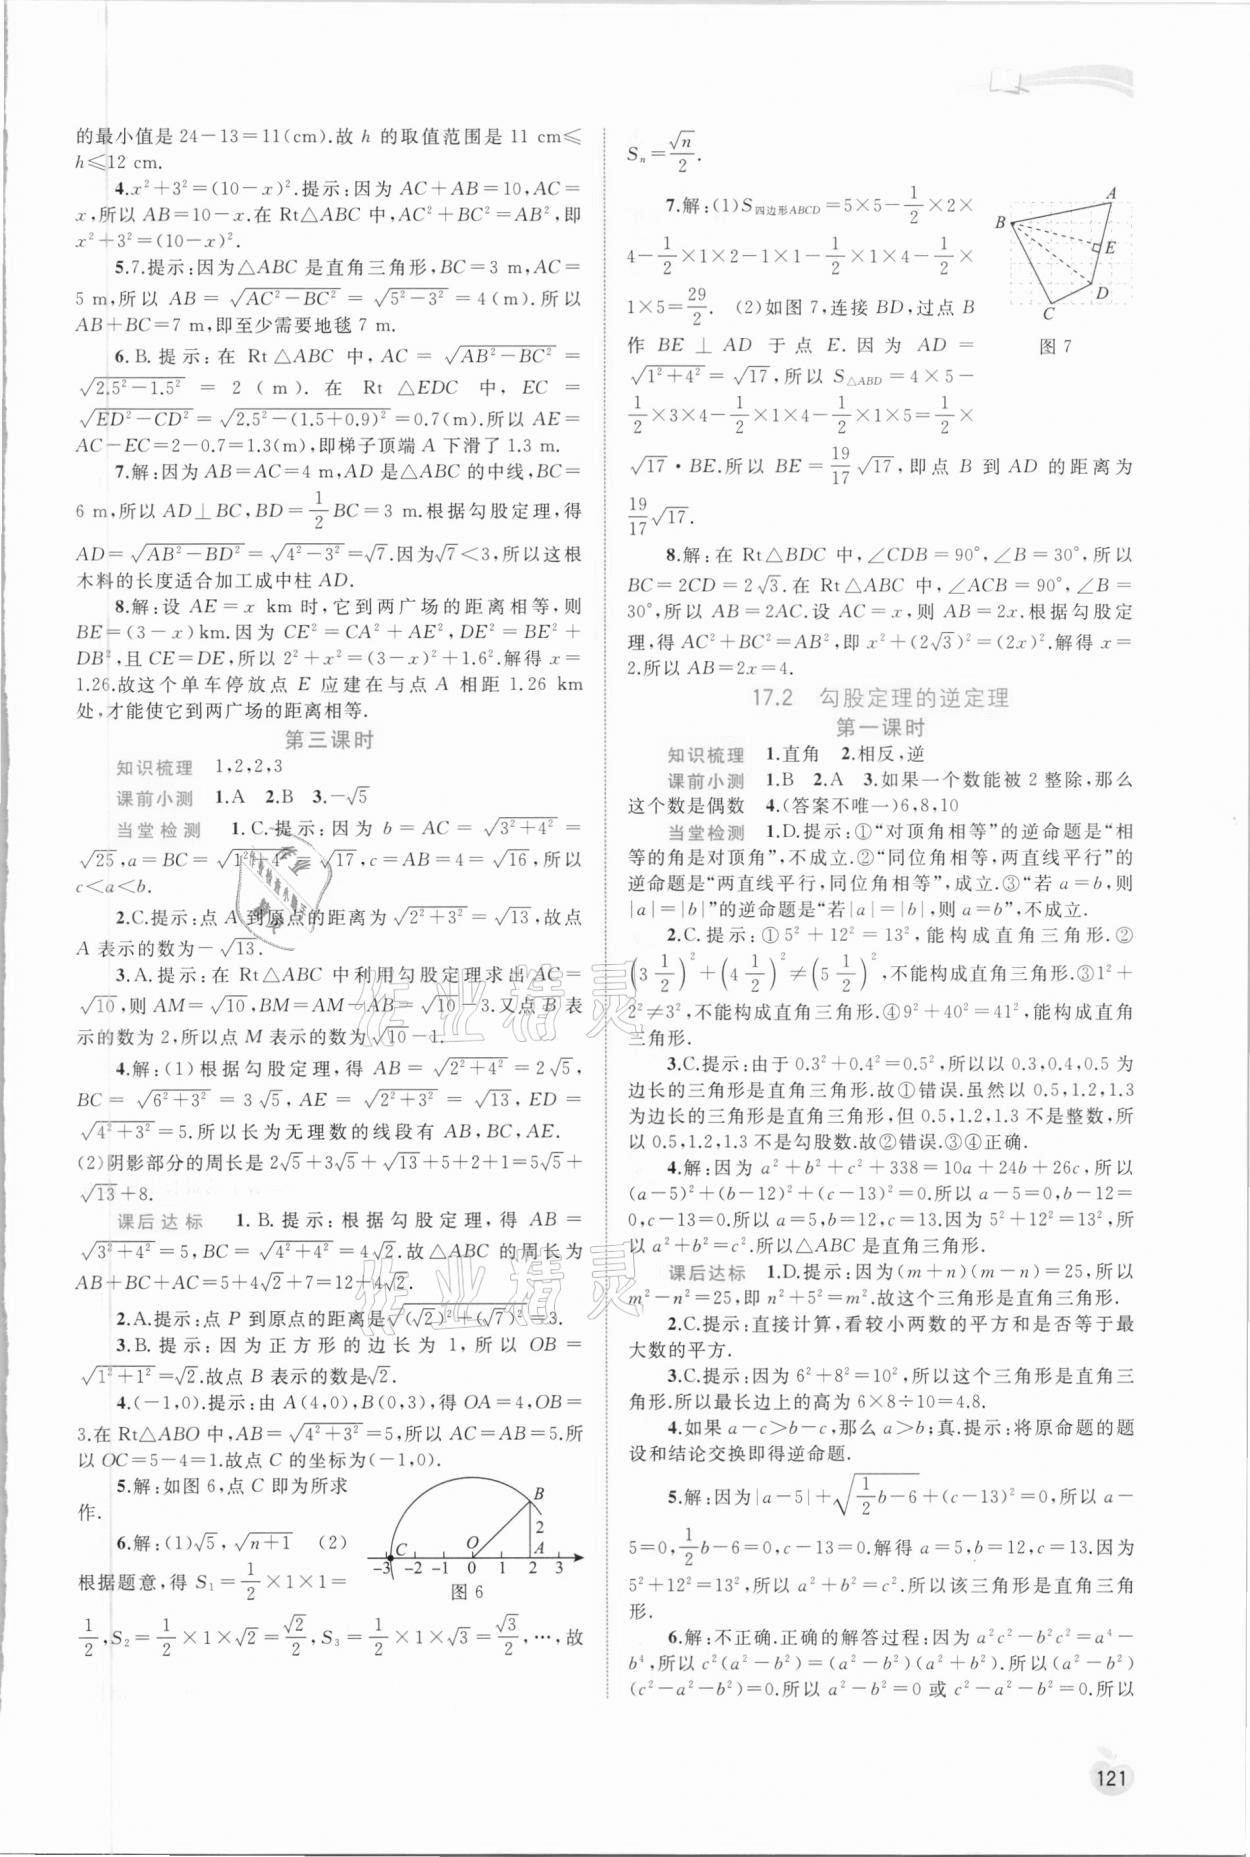 的最小值是 24－13＝11(cm).故 h 的取值范围是 11 cm≤
h≤12 cm.
4.x²＋3²＝(10－x)².提示:因为 AC＋AB＝10,AC＝
x,所以 AB＝10－x.在 Rt△ABC 中,AC²＋BC²＝AB²,即
x²＋3²＝(10－x)².
5.7.提示:因为△ABC 是直角三角形,BC＝3 m,AC＝
5 m,所以 AB＝√(AC²－BC²)＝√(5²－3²)＝4(m).所以
AB＋BC＝7 m,即至少需要地毯 7 m.
6.B.提示:在 Rt△ABC 中,AC＝√(AB²－BC²)＝
√(2.5²－1.5²)＝2(m).在 Rt△EDC 中,EC＝
√(ED²－CD²)＝√(2.5²－(1.5＋0.9)²)＝0.7(m).所以 AE＝
AC－EC＝2－0.7＝1.3(m),即梯子顶端 A 下滑了 1.3 m.
7.解:因为 AB＝AC＝4 m,AD 是△ABC 的中线,BC＝
6 m,所以 AD⊥BC,BD＝1/2 BC＝3 m.根据勾股定理,得
AD＝√(AB²－BD²)＝√(4²－3²)＝√7.因为√7＜3,所以这根
木料的长度适合加工成中柱 AD.
8.解:设 AE＝x km时,它到两广场的距离相等,则
BE＝(3－x)km.因为 CE²＝CA²＋AE²,DE²＝BE²＋
DB²,且 CE＝DE,所以 2²＋x²＝(3－x)²＋1.6².解得 x＝
1.26.故这个单车停放点 E 应建在与点 A 相距 1.26 km
处,才能使它到两广场的距离相等.
第三课时
知识梳理 1,2,2,3
课前小测 1.A 2.B 3.－√5
当堂检测 1.C.提示:因为 b＝AC＝√(3²＋4²)＝
√25,a＝BC＝√(1²＋4²) √17,c＝AB＝4＝√16,所以
c＜a＜b.
2.C.提示:点 A 到原点的距离为√(2²＋3²)＝√13,故点
A 表示的数为－√13.
3.A.提示:在 Rt△ABC 中利用勾股定理求出 AC＝
√10,则 AM＝√10,BM＝AM－AB＝√10－3.又点 B 表
示的数为 2,所以点 M 表示的数为√10－1.
4.解:(1)根据勾股定理,得 AB＝√(2²＋4²)＝2√5,
BC＝√(6²＋3²)＝3√5,AE＝√(2²＋3²)＝√13,ED＝
√(4²＋3²)＝5.所以长为无理数的线段有 AB,BC,AE.
(2)阴影部分的周长是 2√5＋3√5＋√13＋5＋2＋1＝5√5＋
√13＋8.
课后达标 1.B.提示:根据勾股定理,得 AB＝
√(3²＋4²)＝5,BC＝√(4²＋4²)＝4√2.故△ABC 的周长为
AB＋BC＋AC＝5＋4√2＋7＝12＋4√2.
2.A.提示:点 P 到原点的距离是√((√2)²＋(√7)²)＝3.
3.B.提示:因为正方形的边长为 1,所以 OB＝
√(1²＋1²)＝√2.故点 B 表示的数是√2.
4.(－1,0).提示:由 A(4,0),B(0,3),得 OA＝4,OB＝
3.在 Rt△ABO 中,AB＝√(4²＋3²)＝5,所以 AC＝AB＝5.所
以 OC＝5－4＝1.故点 C 的坐标为(－1,0).
5.解:如图 6,点 C 即为所求
作.
6.解:(1)√5,√(n＋1) (2)
根据题意,得 S₁＝1/2×1×1＝
1/2,S₂＝1/2×1×√2＝√2/2,S₃＝1/2×1×√3＝√3/2,…,故
B
2
C O A
－3 －2 －1 0 1 2 3
图 6
Sₙ＝√n/2.
7.解:(1)S四边形ABCD＝5×5－1/2×2×
4－1/2×1×2－1×1－1/2×1×4－1/2×
1×5＝29/2. (2)如图 7,连接 BD,过点 B
作 BE⊥AD 于点 E.因为 AD＝
√(1²＋4²)＝√17,所以 S△ABD＝4×5－
1/2×3×4－1/2×1×4－1/2×1×5＝1/2×
√17·BE.所以 BE＝19/17√17,即点 B 到 AD 的距离为
19/17√17.
A
B
E
D
C
图 7
8.解:在 Rt△BDC 中,∠CDB＝90°,∠B＝30°,所以
BC＝2CD＝2√3.在 Rt△ABC 中,∠ACB＝90°,∠B＝
30°,所以 AB＝2AC.设 AC＝x,则 AB＝2x.根据勾股定
理,得 AC²＋BC²＝AB²,即 x²＋(2√3)²＝(2x)².解得 x＝
2.所以 AB＝2x＝4.
17.2 勾股定理的逆定理
第一课时
知识梳理 1.直角 2.相反,逆
课前小测 1.B 2.A 3.如果一个数能被 2 整除,那么
这个数是偶数 4.(答案不唯一)6,8,10
当堂检测 1.D.提示:①“对顶角相等”的逆命题是“相
等的角是对顶角”,不成立.②“同位角相等,两直线平行”的
逆命题是“两直线平行,同位角相等”,成立.③“若 a＝b,则
|a|＝|b|”的逆命题是“若|a|＝|b|,则 a＝b”,不成立.
2.C.提示:①5²＋12²＝13²,能构成直角三角形.②
(3 1/2)²＋(4 1/2)²≠(5 1/2)²,不能构成直角三角形.③1²＋
2²≠3²,不能构成直角三角形.④9²＋40²＝41²,能构成直角
三角形.
3.C.提示:由于 0.3²＋0.4²＝0.5²,所以以 0.3,0.4,0.5 为
边长的三角形是直角三角形.故①错误.虽然以 0.5,1.2,1.3
为边长的三角形是直角三角形,但 0.5,1.2,1.3 不是整数,所
以 0.5,1.2,1.3 不是勾股数.故②错误.③④正确.
4.解:因为 a²＋b²＋c²＋338＝10a＋24b＋26c,所以
(a－5)²＋(b－12)²＋(c－13)²＝0.所以 a－5＝0,b－12＝
0,c－13＝0.所以 a＝5,b＝12,c＝13.因为 5²＋12²＝13²,所
以 a²＋b²＝c².所以△ABC 是直角三角形.
课后达标 1.D.提示:因为(m＋n)(m－n)＝25,所以
m²－n²＝25,即 n²＋5²＝m².故这个三角形是直角三角形.
2.C.提示:直接计算,看较小两数的平方和是否等于最
大数的平方.
3.C.提示:因为 6²＋8²＝10²,所以这个三角形是直角三
角形.所以最长边上的高为 6×8÷10＝4.8.
4.如果 a－c＞b－c,那么 a＞b;真.提示:将原命题的题
设和结论交换即得逆命题.
5.解:因为|a－5|＋√(1/2 b－6)＋(c－13)²＝0,所以 a－
5＝0,1/2 b－6＝0,c－13＝0.解得 a＝5,b＝12,c＝13.因为
5²＋12²＝13²,所以 a²＋b²＝c².所以该三角形是直角三角
形.
6.解:不正确.正确的解答过程:因为 a²c²－b²c²＝a⁴－
b⁴,所以 c²(a²－b²)＝(a²－b²)(a²＋b²).所以(a²－b²)
(c²－a²－b²)＝0.所以 a²－b²＝0 或 c²－a²－b²＝0.所以
121
作业精灵
作业精灵